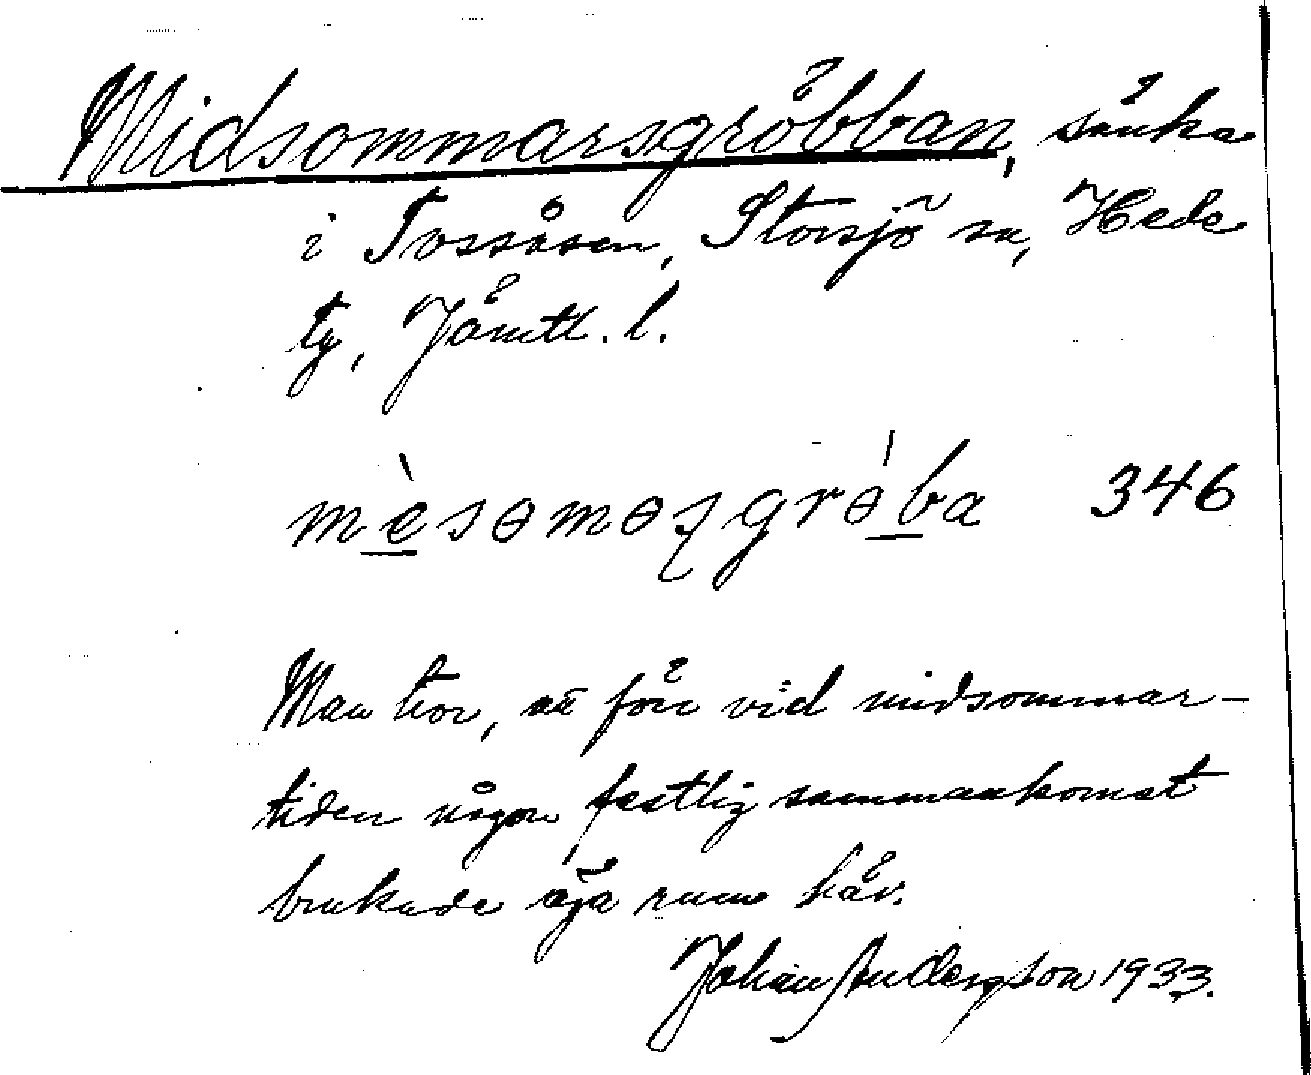 Midsommarsgröbban, sänka
i Tossåsen, Storsjö sn, Hede
tg, Jämtl. l.
mèsɵmɵsgrɵ́ba 346
Man tror, att förr vid midsommar-
tiden någon festlig sammankomst
brukade äga rum här.
Johan Andersson 1933.